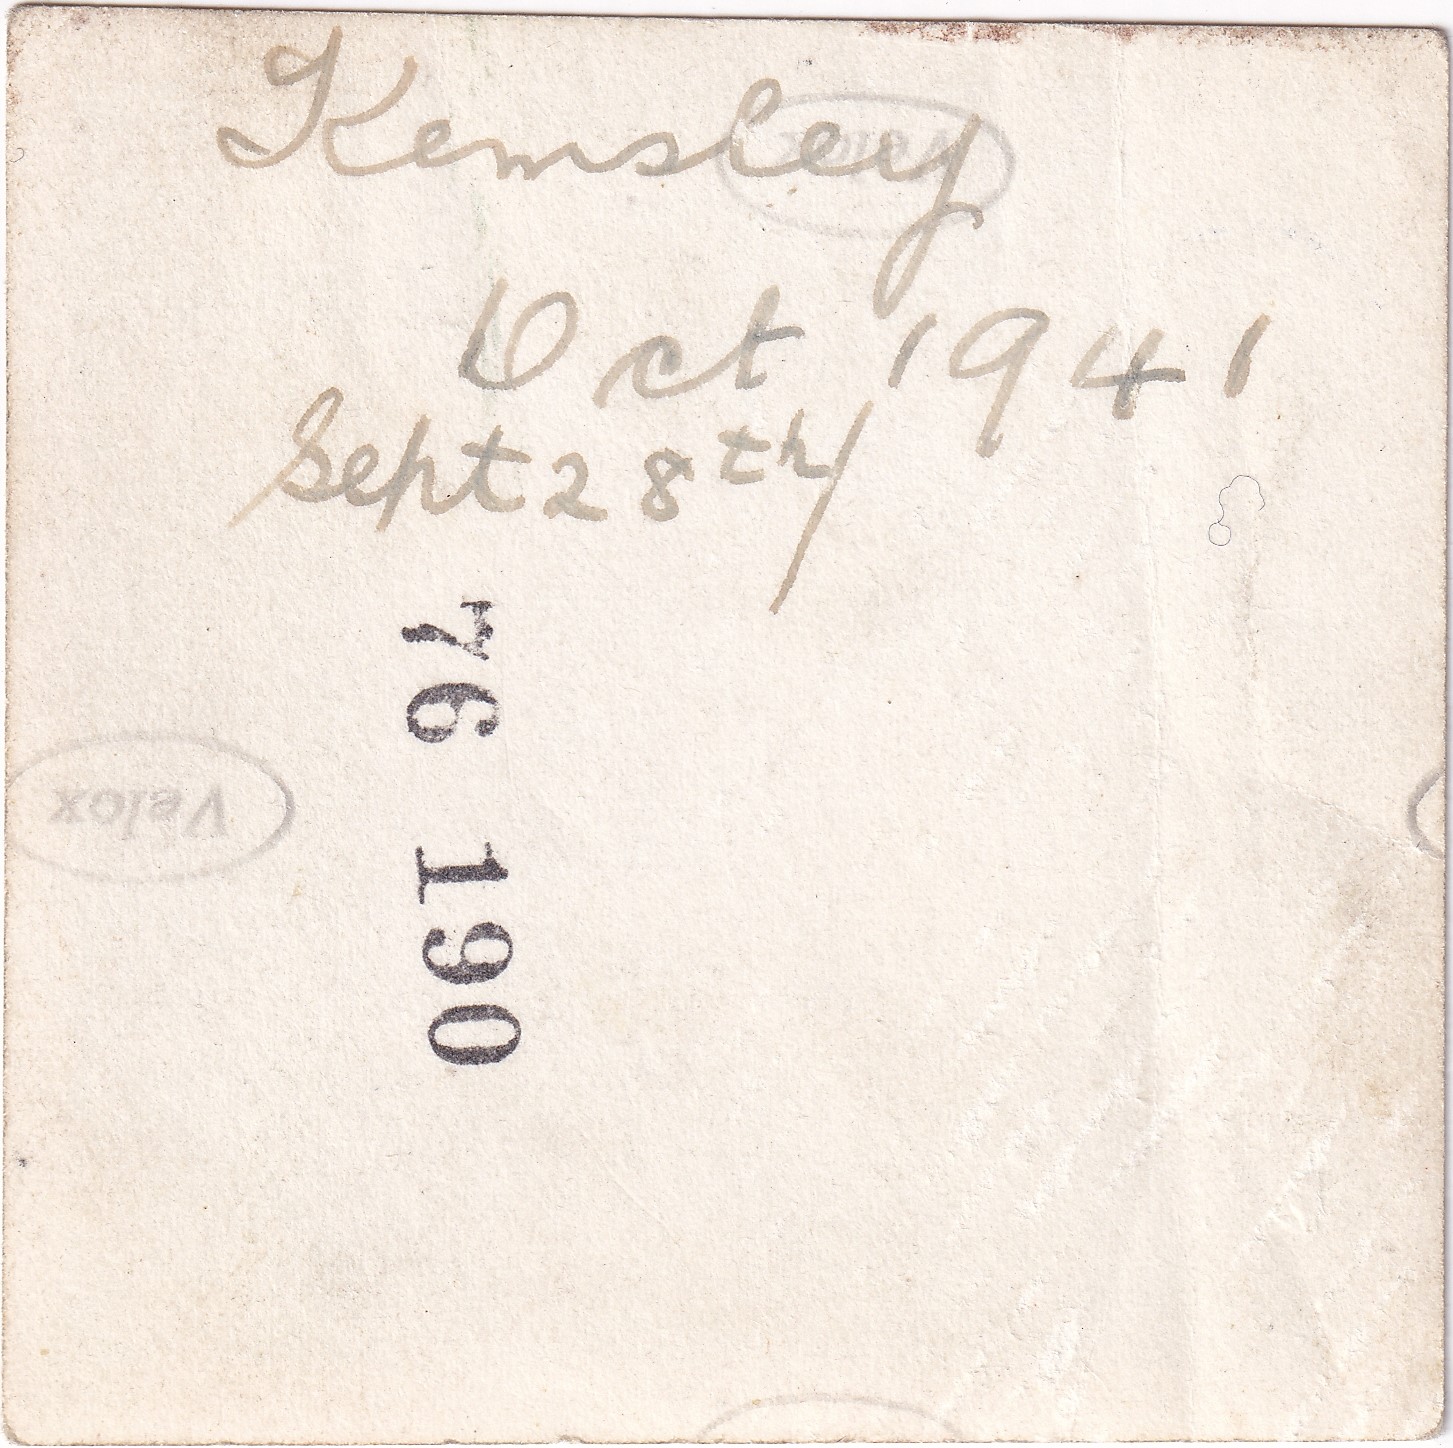 Kemsley
Velox
Oct 1941
Sept 28th/
76 190
Velox